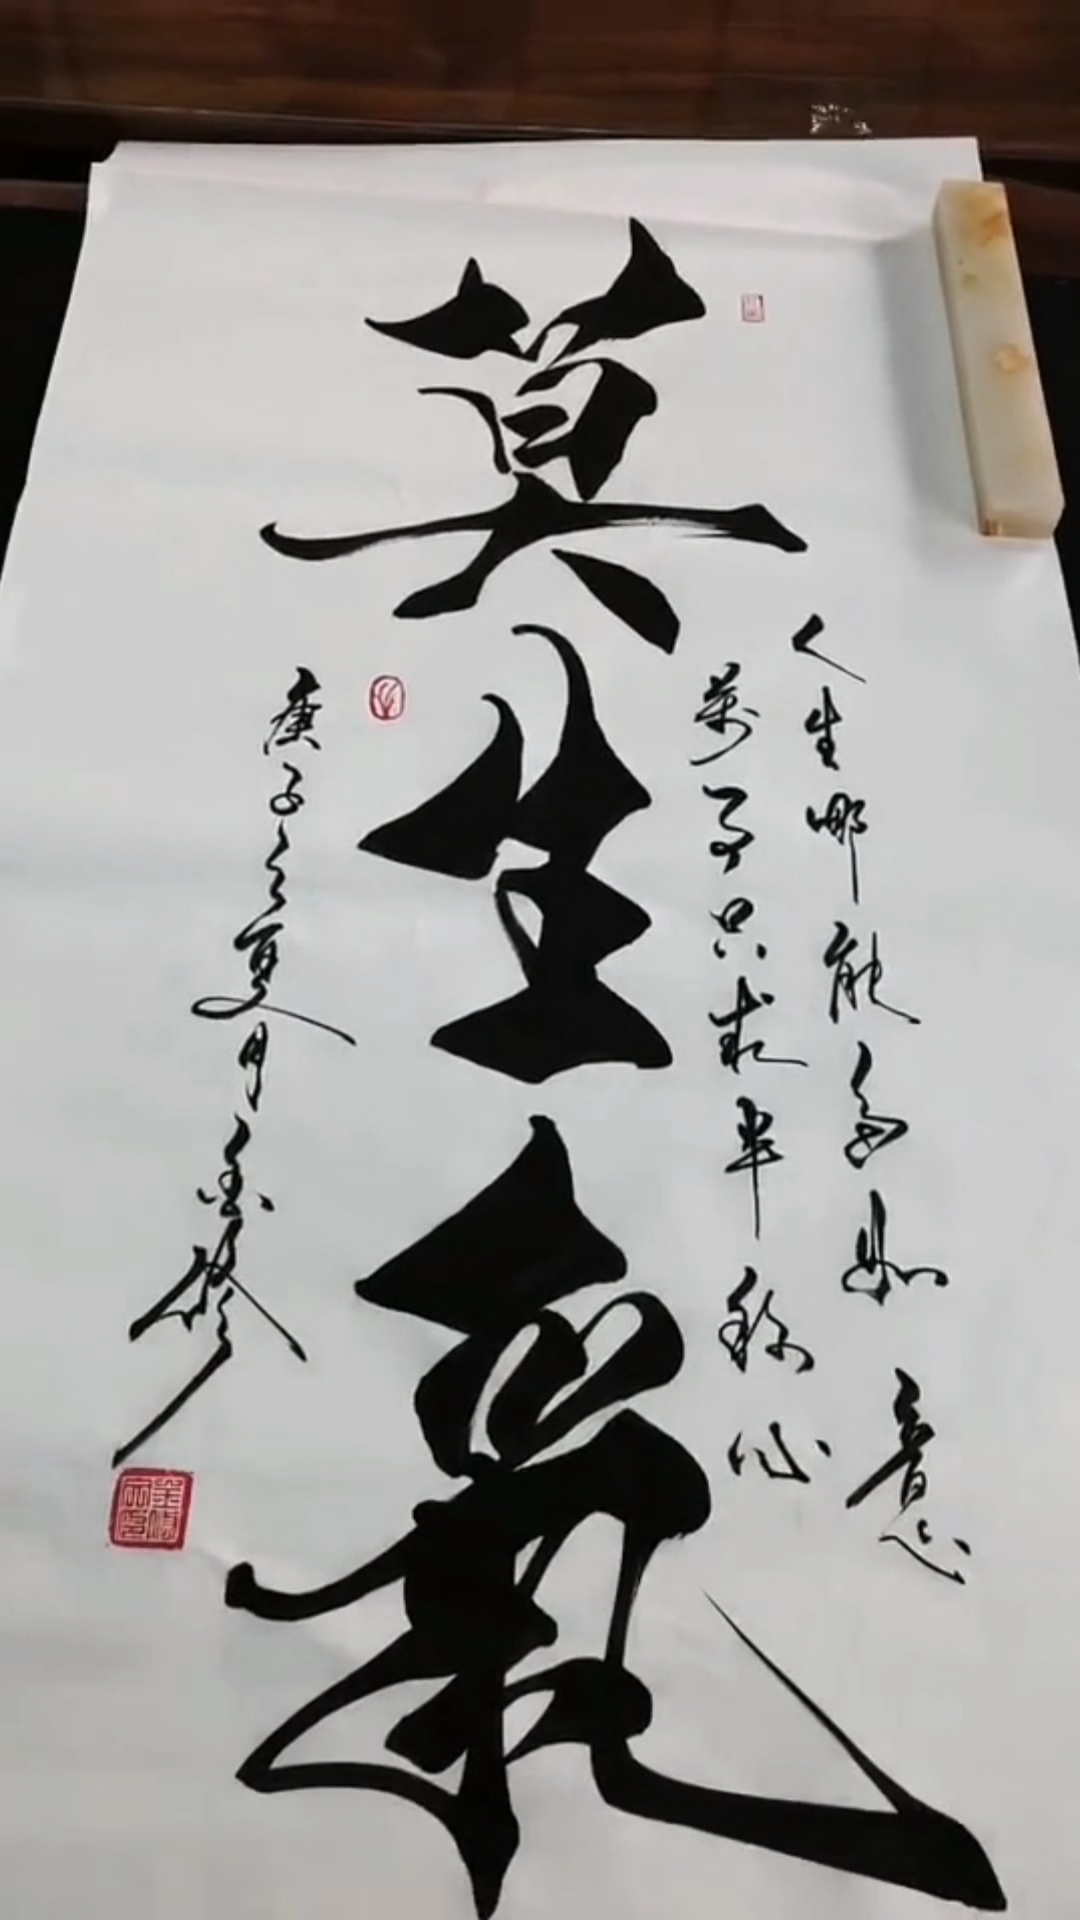 莫生氣
人生哪能多如意
萬事只求半称心
庚子之夏月金